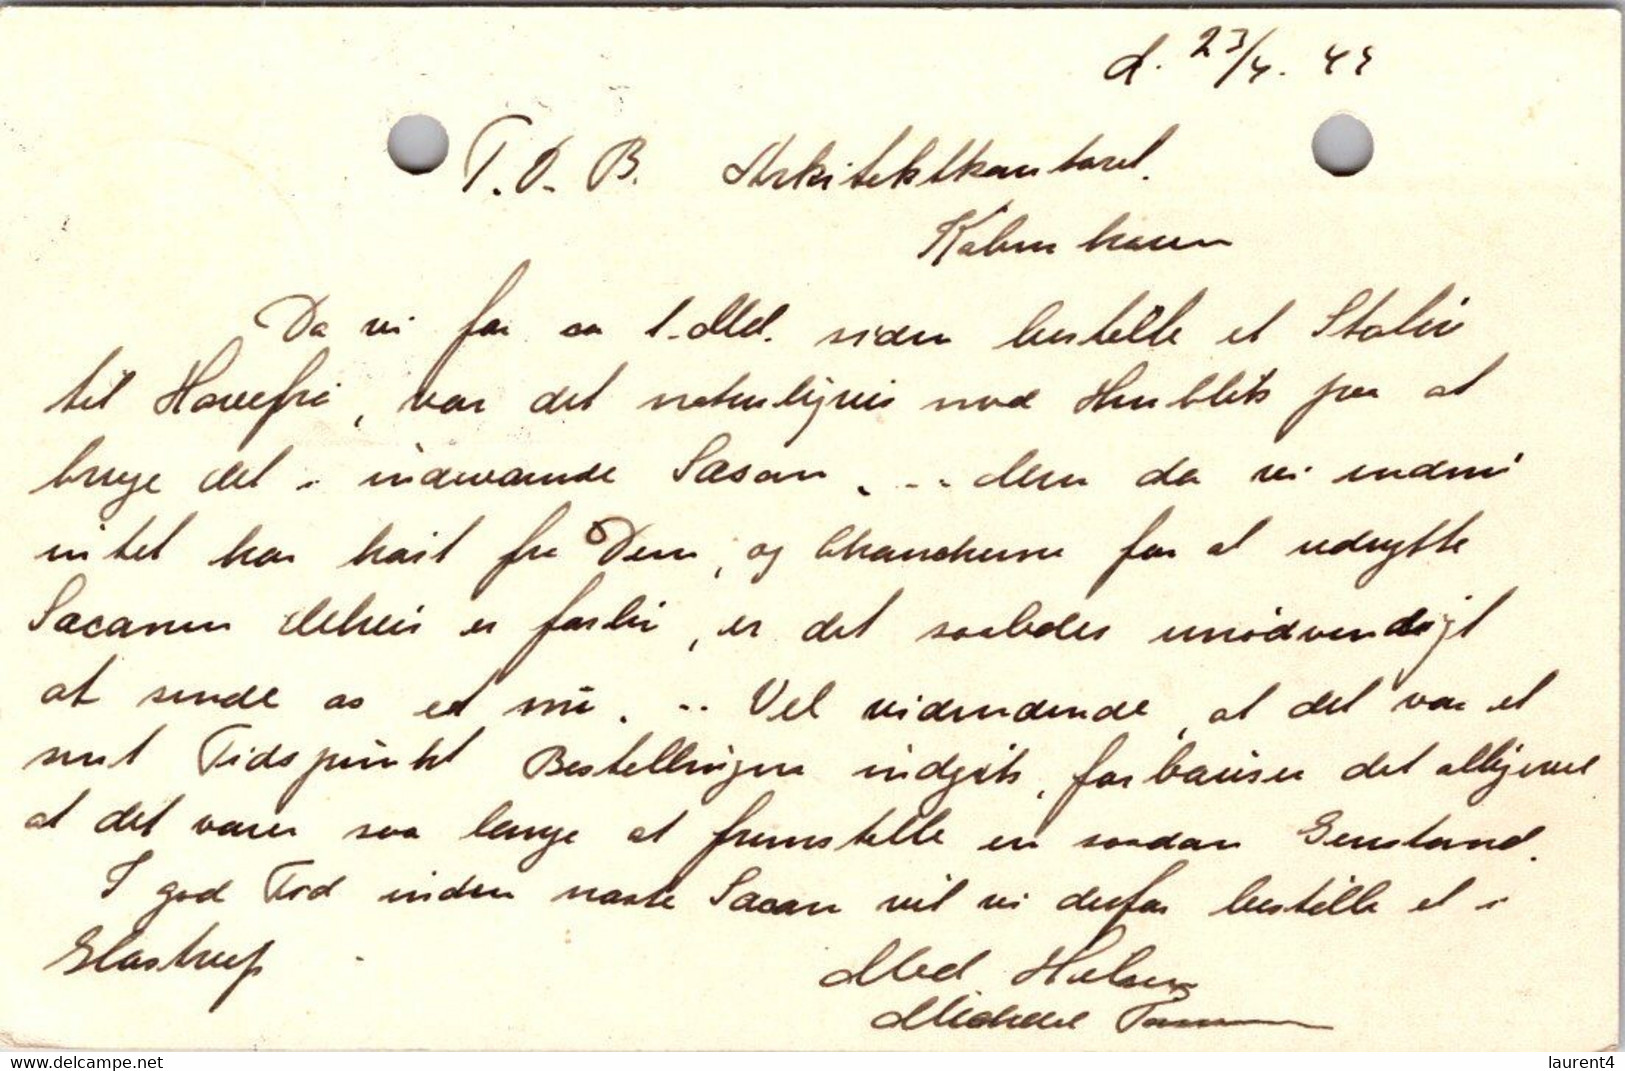 d. 23/4. 44
T.O.B. Arkitektkontoret.
København
Da vi for ca 1. Md. siden bestilte et Stativ
til Havefrø, var det naturligvis med Henblik paa at
bruge det i indeværende Sæson. -- Men da vi endnu
intet har hørt fra Dem, og Chancherne for at udnytte
Sæsonen delvis er forbi, er det saaledes unødvendigt
at sende os et nu. -- Vel vidende, at det var et
sent Tidspunkt Bestillingen indgik, forbauser det alligevel
at det varer saa længe at fremstille en saadan Genstand.
I god Tid inden næste Sæson vil vi derfor bestille et i
Glostrup
Med Hilsen
laurent4
www.delcampe.net